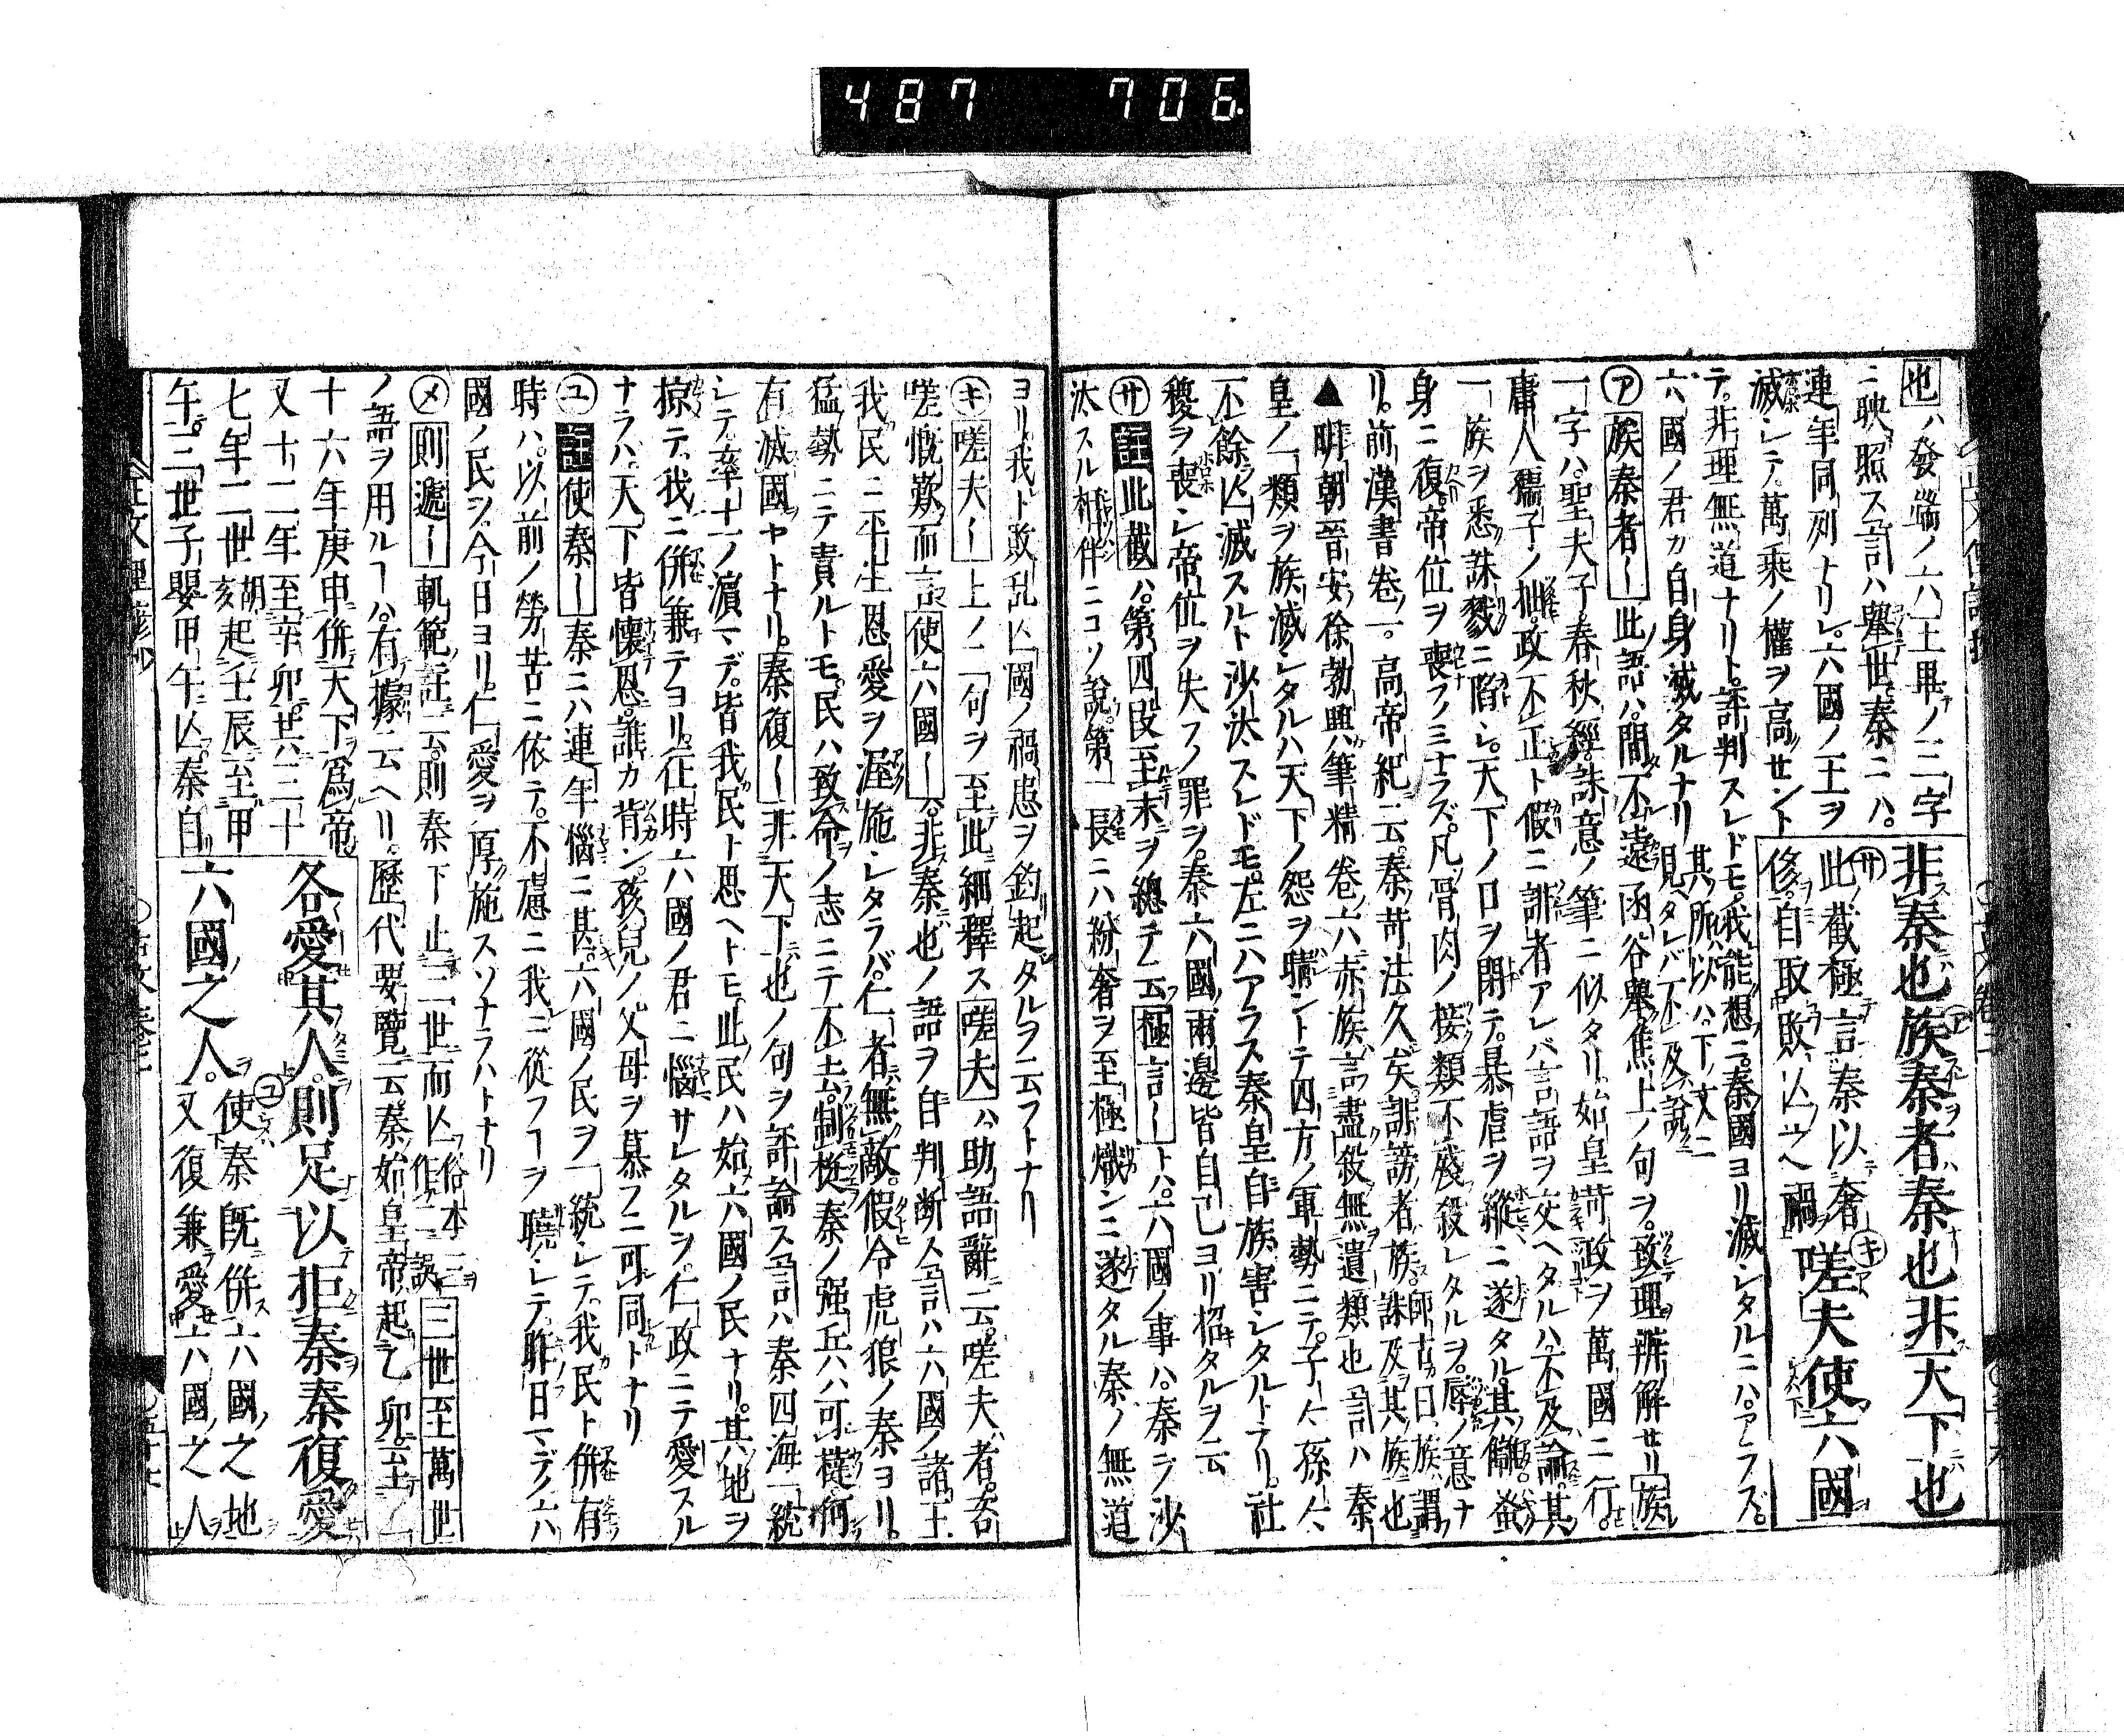 487 706.
也ハ發端ノ六王畢ノ三字
ニ映照ス言ハ舉世秦ニハ
連年同列トリレ六國ノ王ヲ
滅レテ萬乘ノ權ヲ高せント
非秦也族秦者秦也非天下也
此截極言秦以奢
修自取敗亾之禍
嗟夫使六國
テ非理無道ナリト評判スレドモ我能想ニ秦國ヨリ滅シタルニハアラズ
六國ノ君カ自身滅タルナリ其所以ハ下文ニ見タレバ不及說
㋐族秦者ー此語ハ間不遠函谷舉焦土ノ句ヲ致理辨解せリ族
一字ハ聖夫子春秋經誅意ノ筆ニ似タリ始皇苛政ヲ萬國ニ行
庸人孺子ノ拙政不正ト假ニ誹者アレバ言語ヲ交ヘタルハ不及論其
一族ヲ悉誅戮ニ陷レ天下ノ口ヲ閉テ暴虐ヲ縱ニ遂タル其
身ニ復帝位ヲ喪フノミナラズ凡骨肉ノ接類不殘殺レタルヲ辱ノ意ナ
リ前漢書卷一高帝紀云秦苛法久矣誹謗者族師古曰族謂誅及其族也
▲明朝晉安徐勃興ハ筆精卷六赤族言盡殺無遺類也言ハ秦
皇ノ一類ヲ族滅レタルハ天下ノ怨ヲ晴ントテ四方ノ軍勢ニテ子〻孫〻
不餘亾滅スルト沙汰スレドモ左ニハアラス秦皇自族害シタルトナリ社
稷ヲ喪シ帝位ヲ失フノ罪ヲ秦六國兩邊皆自己ヨリ招タルヲ云
㋚註此截ハ第四段至末ヲ總テ云極言ートハ六國ノ事ハ秦ヲ沙
汰スル相伴ニコソ說第一長ニハ紛奢ヲ至極熾ンニ遂タル秦ノ無道
ヨリ我ト敗乱亾國ノ禍患ヲ釣起タルヲ云フトナリ
㋖嗟夫ー上ノ二句ヲ至此細釋ス嗟夫ハ助語辭云嗟夫者咨
嗟慨歎而言使六國ー非秦也ノ語ヲ自判断ス言ハ六國ノ諸王
我民ニ平生恩愛ヲ渥施レタラバ仁者無敵假令虎狼ノ秦ヨリ
猛勢ニテ責ルトモ民ハ致命ノ志ニテ不去制梃秦ノ强兵ハ可撻何
有滅國ヤトナリ秦復ー非天下也ノ句ヲ評論ス言ハ秦四海一統
レテ率土ノ濱マデ皆我民ト思ヘトモ此民ハ始六國ノ民ナリ其地ヲ
掠テ我ニ併兼テヨリ往時六國ノ君ニ惱サレタルヲ仁政ニテ愛スル
ナラハ天下皆懷恩誰カ背ン孩兒ノ父母ヲ慕フニ可同トナリ
㋴註使秦ー秦ニハ連年惱ニ甚六國ノ民ヲ一統レテ我民ト併有
時ハ以前ノ勞苦ニ依テ不慮ニ我ニ從フーヲ曉レテ昨日マデノ六
國ノ民ヲ今日ヨリ仁愛ヲ厚施スソナラハトナリ
㋱則遞ー軌範註云則秦下止二世而亾俗本三作二誤三世至萬世
ノ語ヲ用ルーハ有據云ヘリ歷代要覽云秦始皇帝起乙卯云至
十六年庚申併天下爲帝
又十二年至辛卯共三十
七年二世胡亥起壬辰至甲
午三世子嬰甲午亾秦自
各愛其人則足以拒秦秦復愛
六國之人
使秦既併六國之地
又復兼愛六國之人